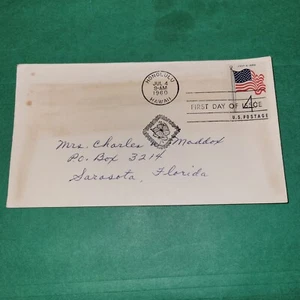 HONOLULU
JUL 4
9-AM
1960
HAWAII
FIRST DAY OF ISSUE
U.S. POSTAGE
Mrs. Charles Maddox
P.O. Box 3214
Sarasota, Florida